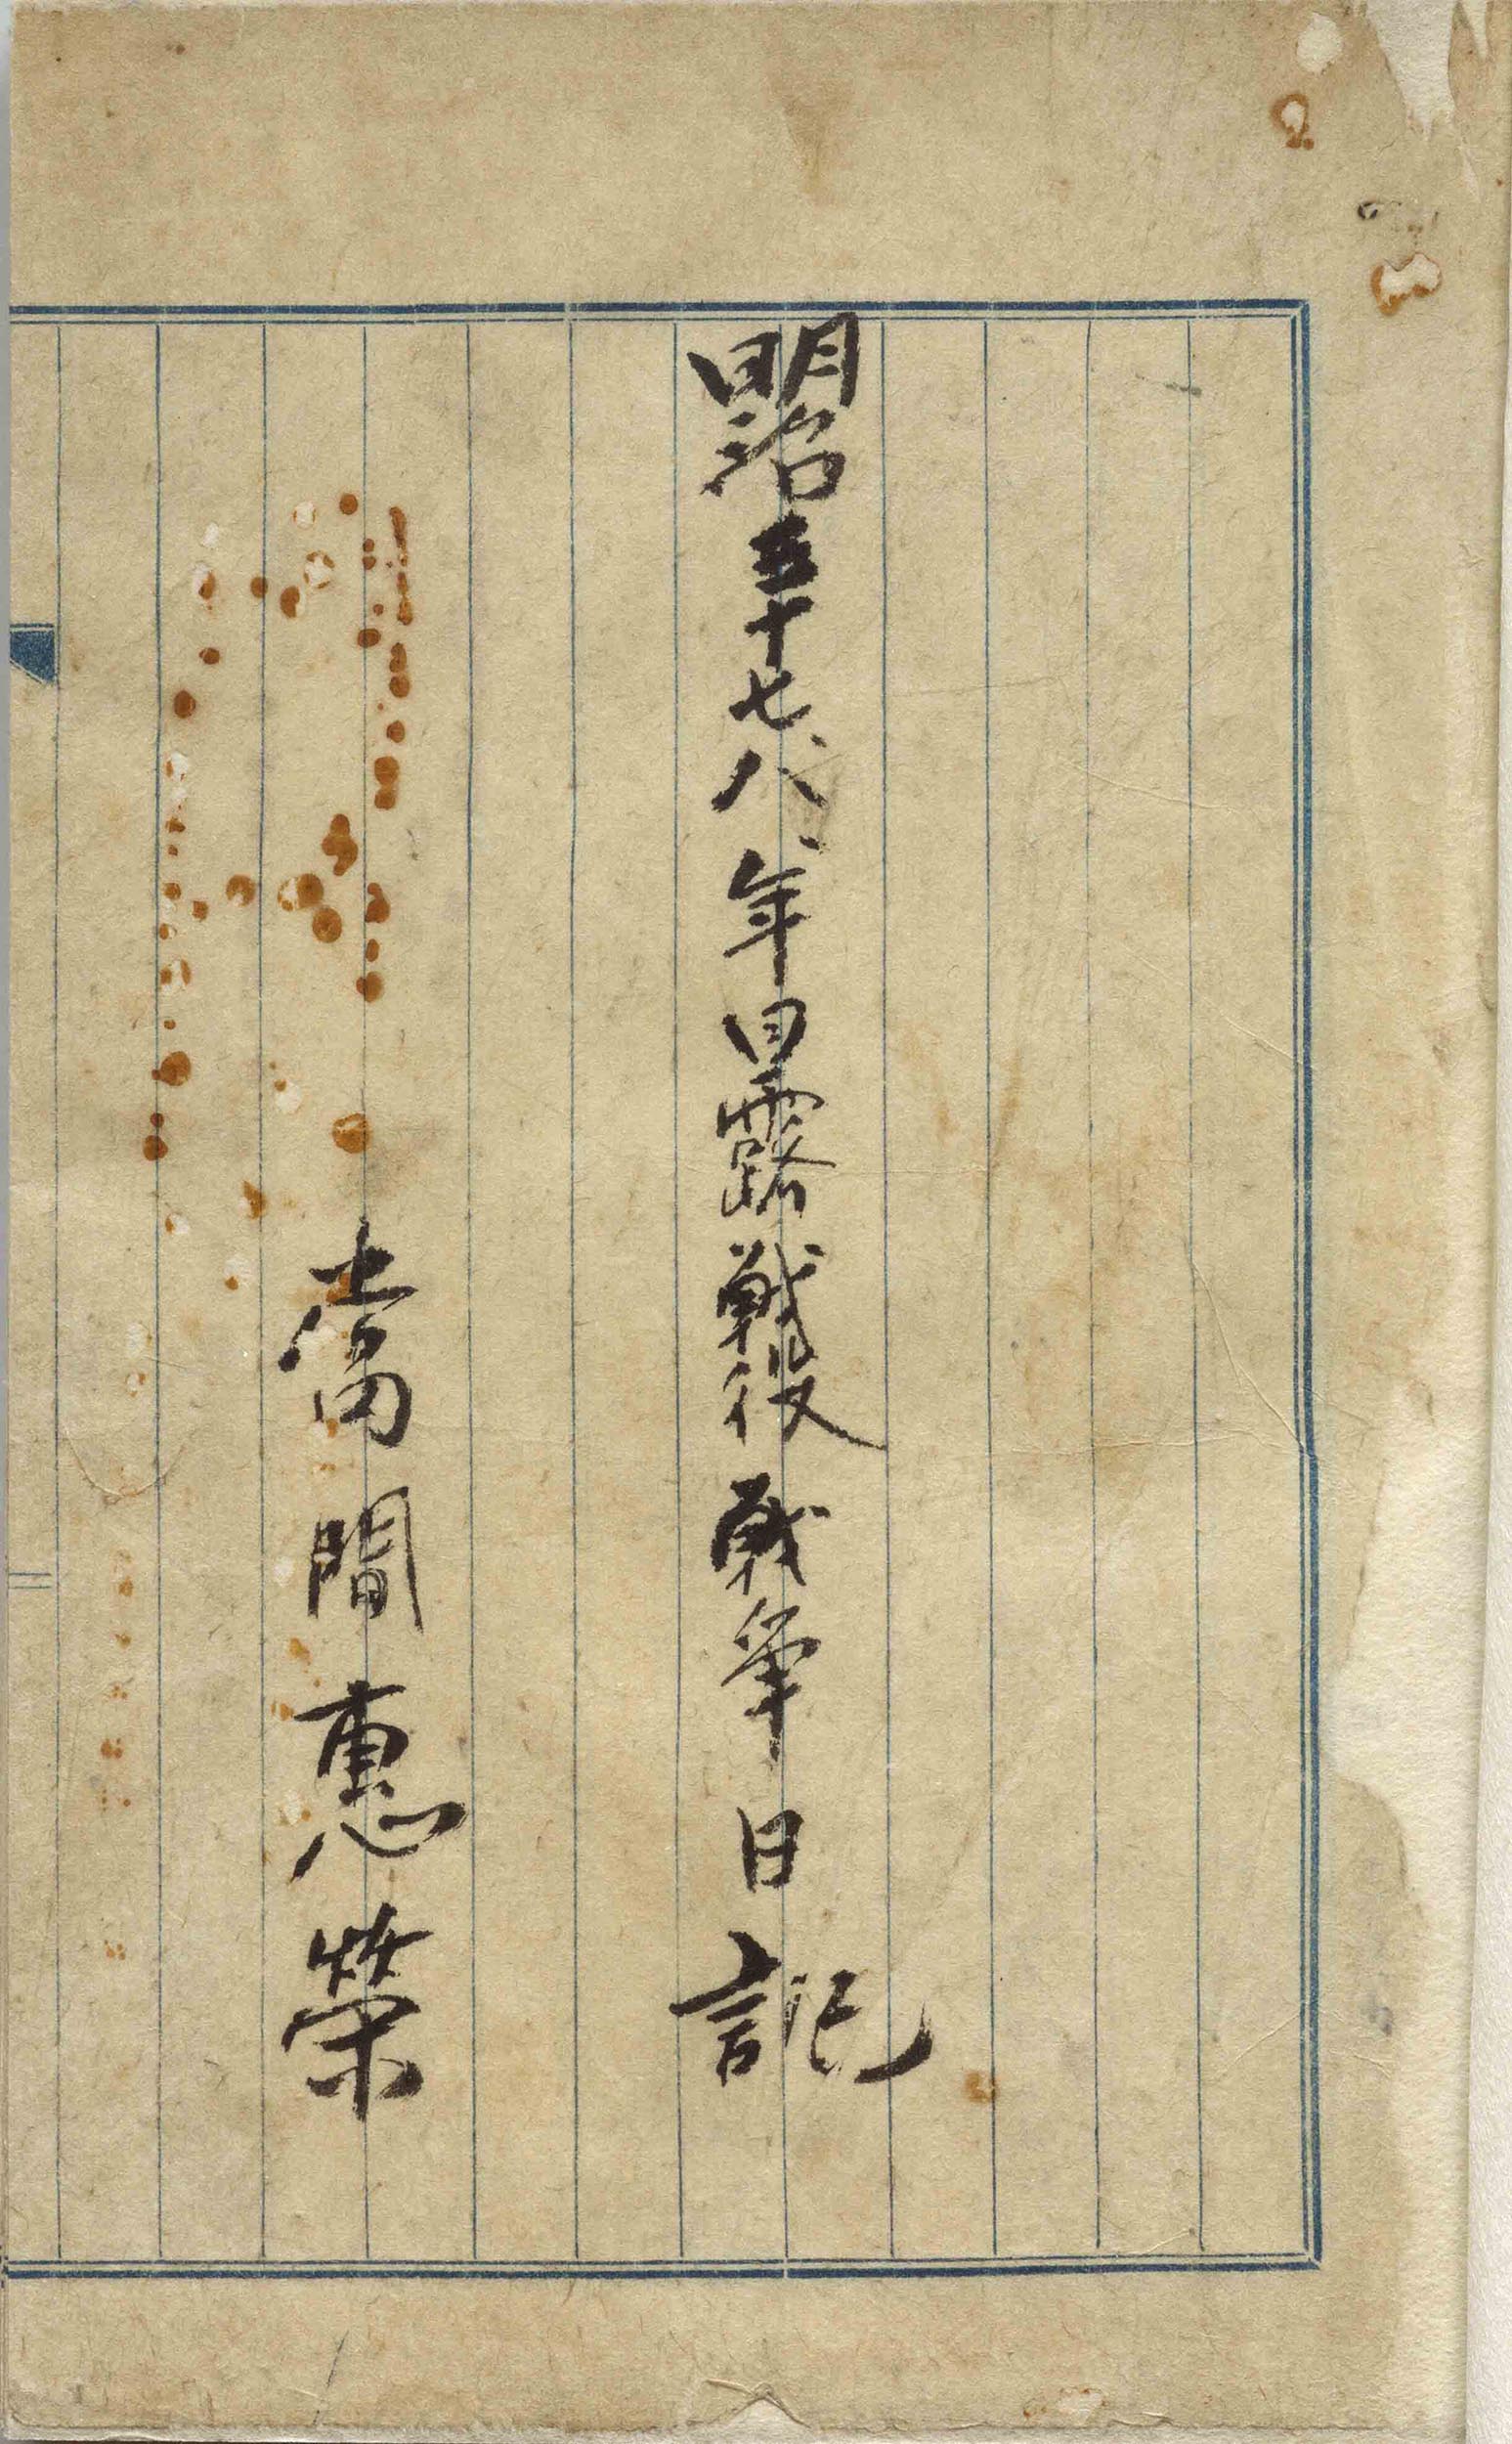 明治三十七、八、年日露戦役戦争日記
當間恵栄